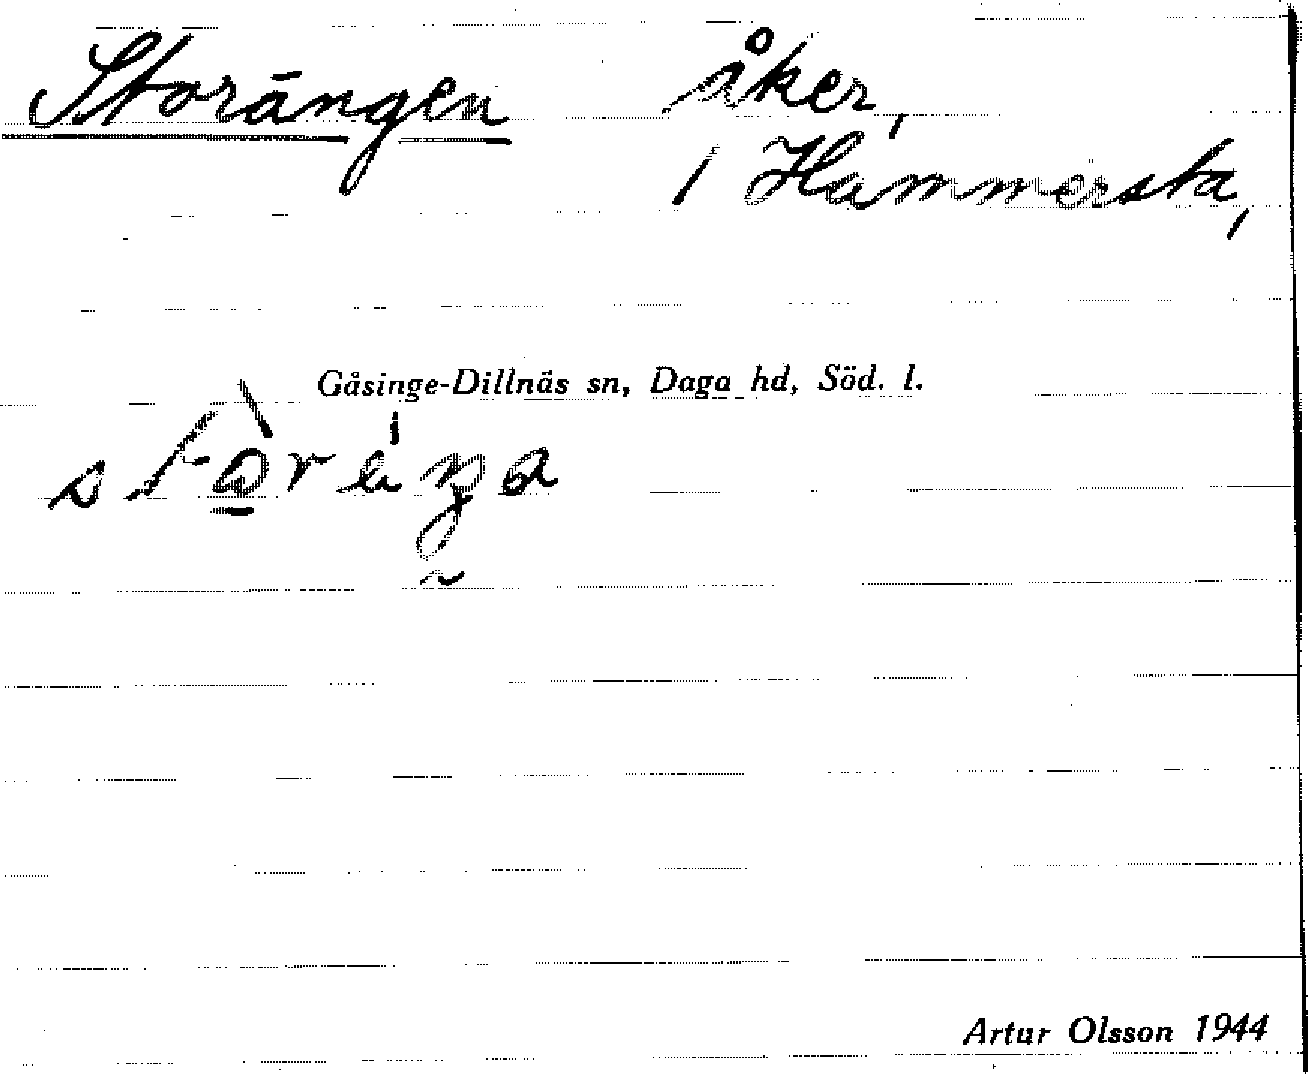 Storängen åker,
i Hammersta,
Gåsinge-Dillnäs sn, Daga hd, Söd. l.
Artur Olsson 1944